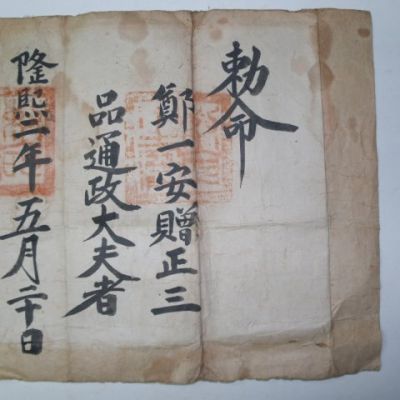 勅命
鄭一安贈正三
品通政大夫者
隆熙二年五月二十日